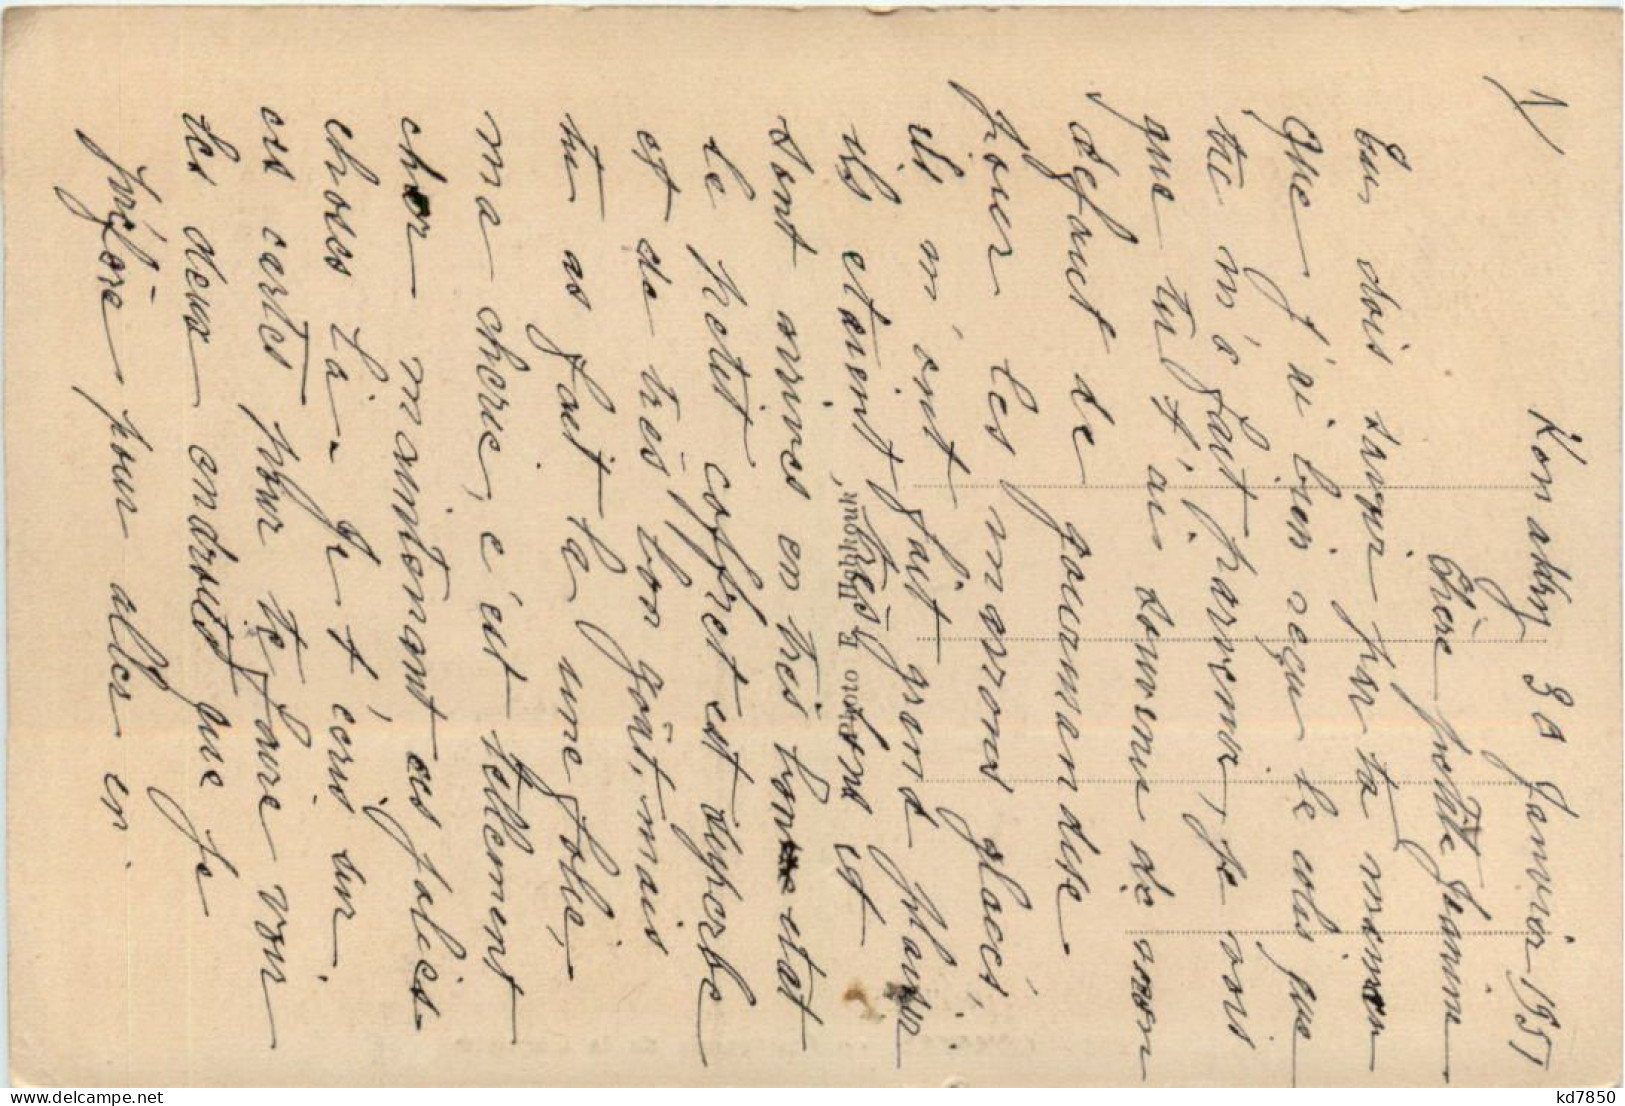 1/
Konakry 30 Janvier 1951
Chère petite Jeanine
Tu dois savoir par ta maman
que j'ai bien reçu le colis que
tu m'a fait parvenir, je vois
que tu t'ai souvenu de mon
defaut de gourmandise.
pour les marrons glacés,
ils m'ont fait grand plaisir
ils etaient très bons et
sont arrivés en très bon etat
le petit coffret est superbe
et de très bon goût, mais
tu as fait la une folie,
ma cherie, c'est tellement
cher maintenant ces jolies
choses là. Je t'écris sur
ces cartes pour te faire voir
les deux endroits que je
préfère pour aller en.
Photo E. Habkouk
kd7850